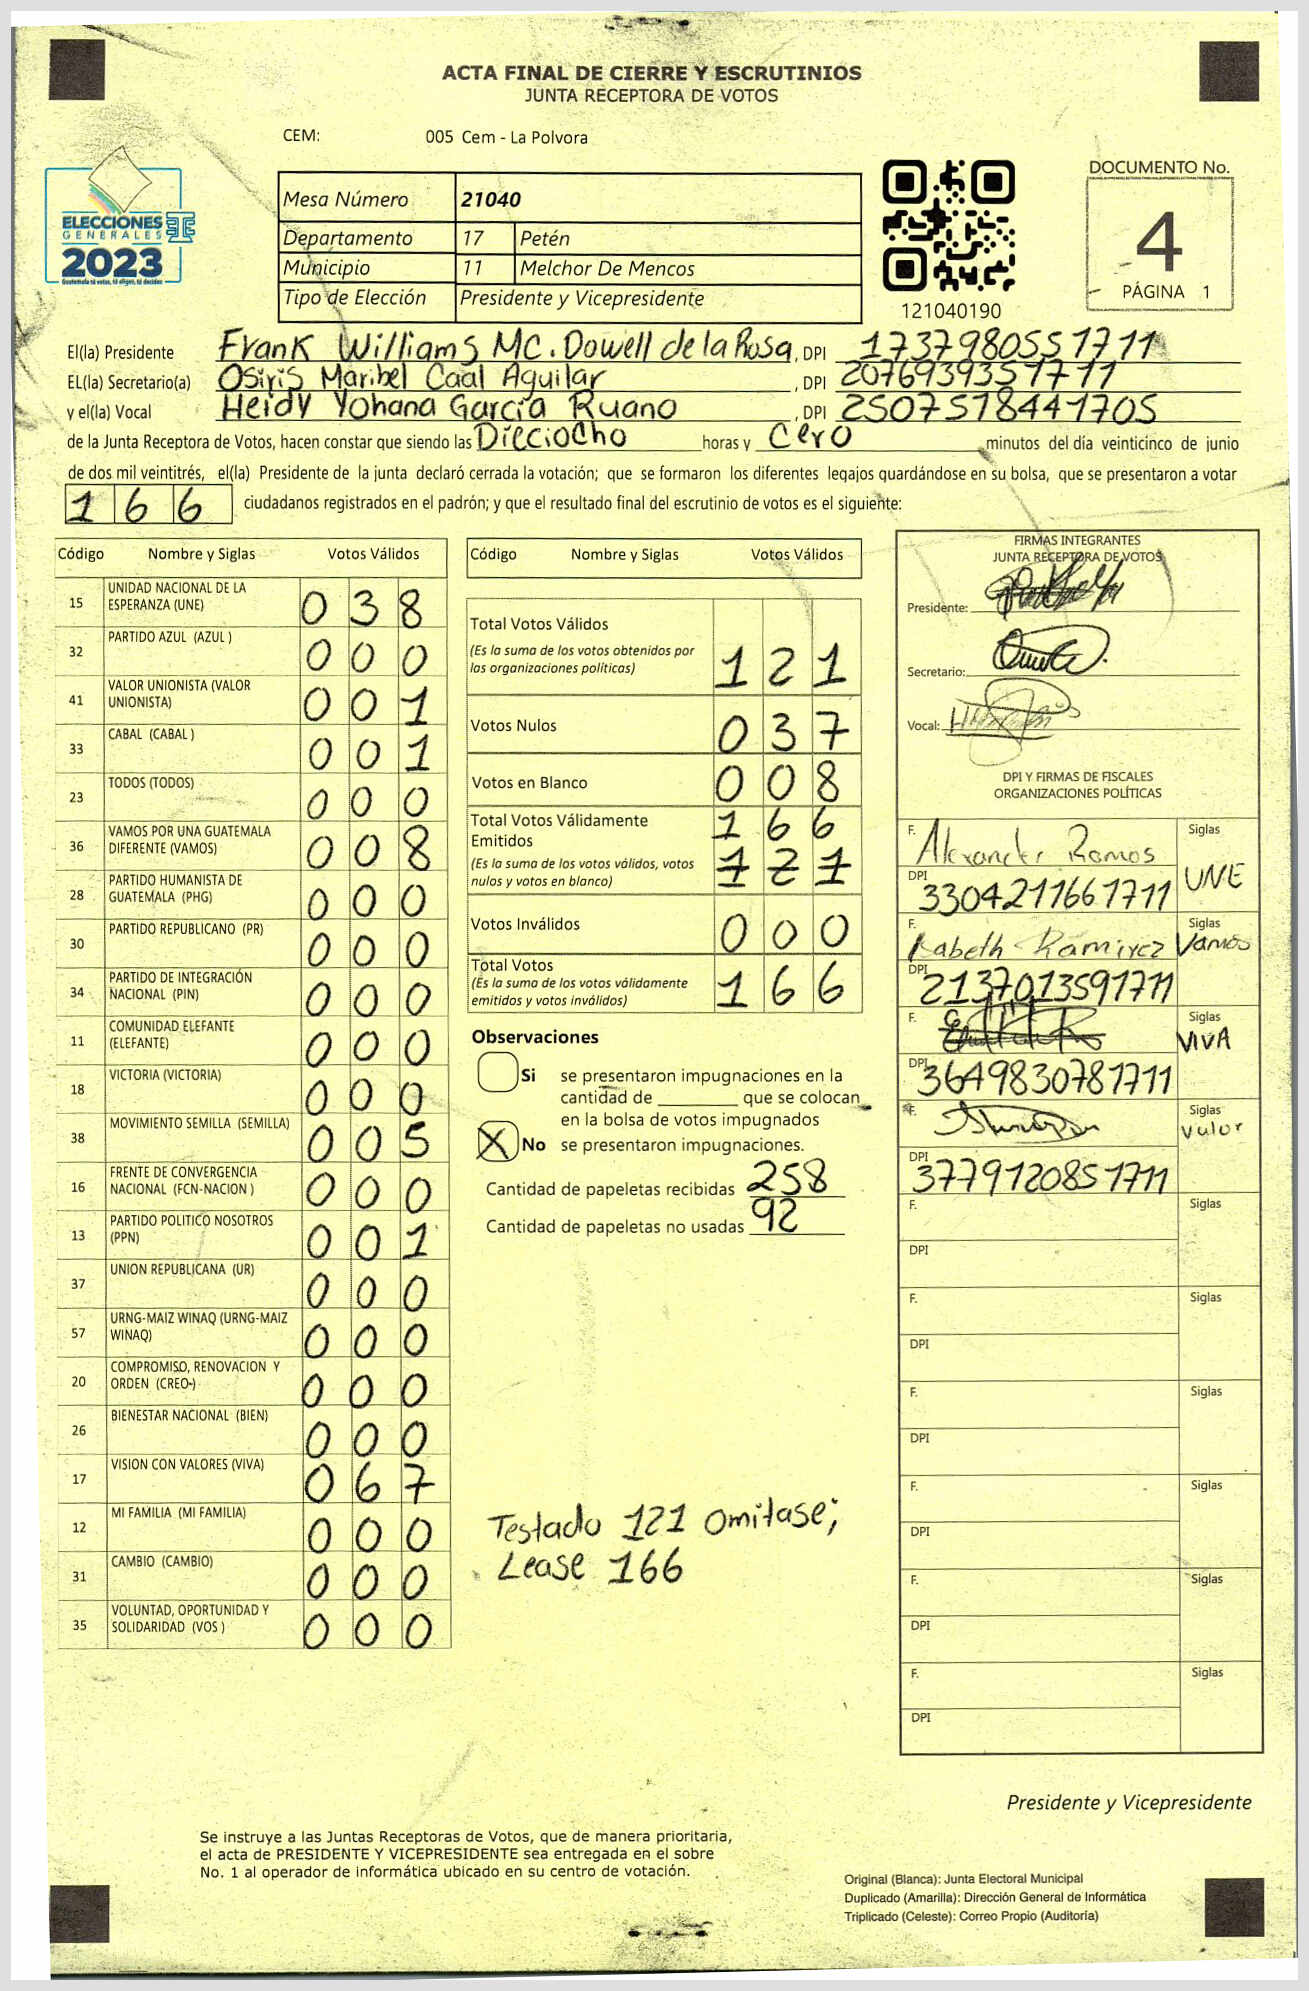 ACTA FINAL DE CIERRE Y ESCRUTINIOS
JUNTA RECEPTORA DE VOTOS
CEM: 005 Cem - La Polvora
ELECCIONES
GENERALES
2023
Guatemala tú votas, tú eliges, tú decides
Mesa Número 21040
Departamento 17 Petén
Municipio 11 Melchor De Mencos
Tipo de Elección Presidente y Vicepresidente
121040190
DOCUMENTO No.
4
PÁGINA 1
El(la) Presidente Frank Williams MC. Dowell de la Rosa, DPI 1737980551711
EL(la) Secretario(a) Osiris Maribel Caal Aguilar, DPI 2076939351711
y el(la) Vocal Heidy Yohana García Ruano, DPI 2507518441705
de la Junta Receptora de Votos, hacen constar que siendo las Dieciocho horas y cero minutos del día veinticinco de junio
de dos mil veintitrés, el(la) Presidente de la junta declaró cerrada la votación; que se formaron los diferentes legajos quardándose en su bolsa, que se presentaron a votar
166 ciudadanos registrados en el padrón; y que el resultado final del escrutinio de votos es el siguiente:
Código Nombre y Siglas Votos Válidos
15 UNIDAD NACIONAL DE LA ESPERANZA (UNE) 038
32 PARTIDO AZUL (AZUL ) 000
41 VALOR UNIONISTA (VALOR UNIONISTA) 001
33 CABAL (CABAL ) 001
23 TODOS (TODOS) 000
36 VAMOS POR UNA GUATEMALA DIFERENTE (VAMOS) 008
28 PARTIDO HUMANISTA DE GUATEMALA (PHG) 000
30 PARTIDO REPUBLICANO (PR) 000
34 PARTIDO DE INTEGRACIÓN NACIONAL (PIN) 000
11 COMUNIDAD ELEFANTE (ELEFANTE) 000
18 VICTORIA (VICTORIA) 000
38 MOVIMIENTO SEMILLA (SEMILLA) 005
16 FRENTE DE CONVERGENCIA NACIONAL (FCN-NACION ) 000
13 PARTIDO POLITICO NOSOTROS (PPN) 001
37 UNION REPUBLICANA (UR) 000
57 URNG-MAIZ WINAQ (URNG-MAIZ WINAQ) 000
20 COMPROMISO, RENOVACION Y ORDEN (CREO-) 000
26 BIENESTAR NACIONAL (BIEN) 000
17 VISION CON VALORES (VIVA) 067
12 MI FAMILIA (MI FAMILIA) 000
31 CAMBIO (CAMBIO) 000
35 VOLUNTAD, OPORTUNIDAD Y SOLIDARIDAD (VOS ) 000
Código Nombre y Siglas Votos Válidos
Total Votos Válidos
(Es la suma de los votos obtenidos por las organizaciones políticas) 121
Votos Nulos 037
Votos en Blanco 008
Total Votos Válidamente Emitidos 166
(Es la suma de los votos válidos, votos nulos y votos en blanco) 121
Votos Inválidos 000
Total Votos
(Es la suma de los votos válidamente emitidos y votos inválidos) 166
Observaciones
Si se presentaron impugnaciones en la
cantidad de ________ que se colocan
en la bolsa de votos impugnados
X No se presentaron impugnaciones.
Cantidad de papeletas recibidas 258
Cantidad de papeletas no usadas 92
Testado 121 Omitase;
Lease 166
FIRMAS INTEGRANTES
JUNTA RECEPTORA DE VOTOS
Presidente:
Secretario:
Vocal:
DPI Y FIRMAS DE FISCALES
ORGANIZACIONES POLÍTICAS
F. Alexander Ramos Siglas UNE
DPI 3304211661711
F. Ramirez Siglas Vamos
DPI 2137013591711
F. Siglas VIVA
DPI 3649830781711
F. Siglas valor
DPI 3779120851711
F. Siglas
DPI
F. Siglas
DPI
F. Siglas
DPI
F. Siglas
DPI
F. Siglas
DPI
F. Siglas
DPI
Presidente y Vicepresidente
Se instruye a las Juntas Receptoras de Votos, que de manera prioritaria,
el acta de PRESIDENTE Y VICEPRESIDENTE sea entregada en el sobre
No. 1 al operador de informática ubicado en su centro de votación.
Original (Blanca): Junta Electoral Municipal
Duplicado (Amarilla): Dirección General de Informática
Triplicado (Celeste): Correo Propio (Auditoría)